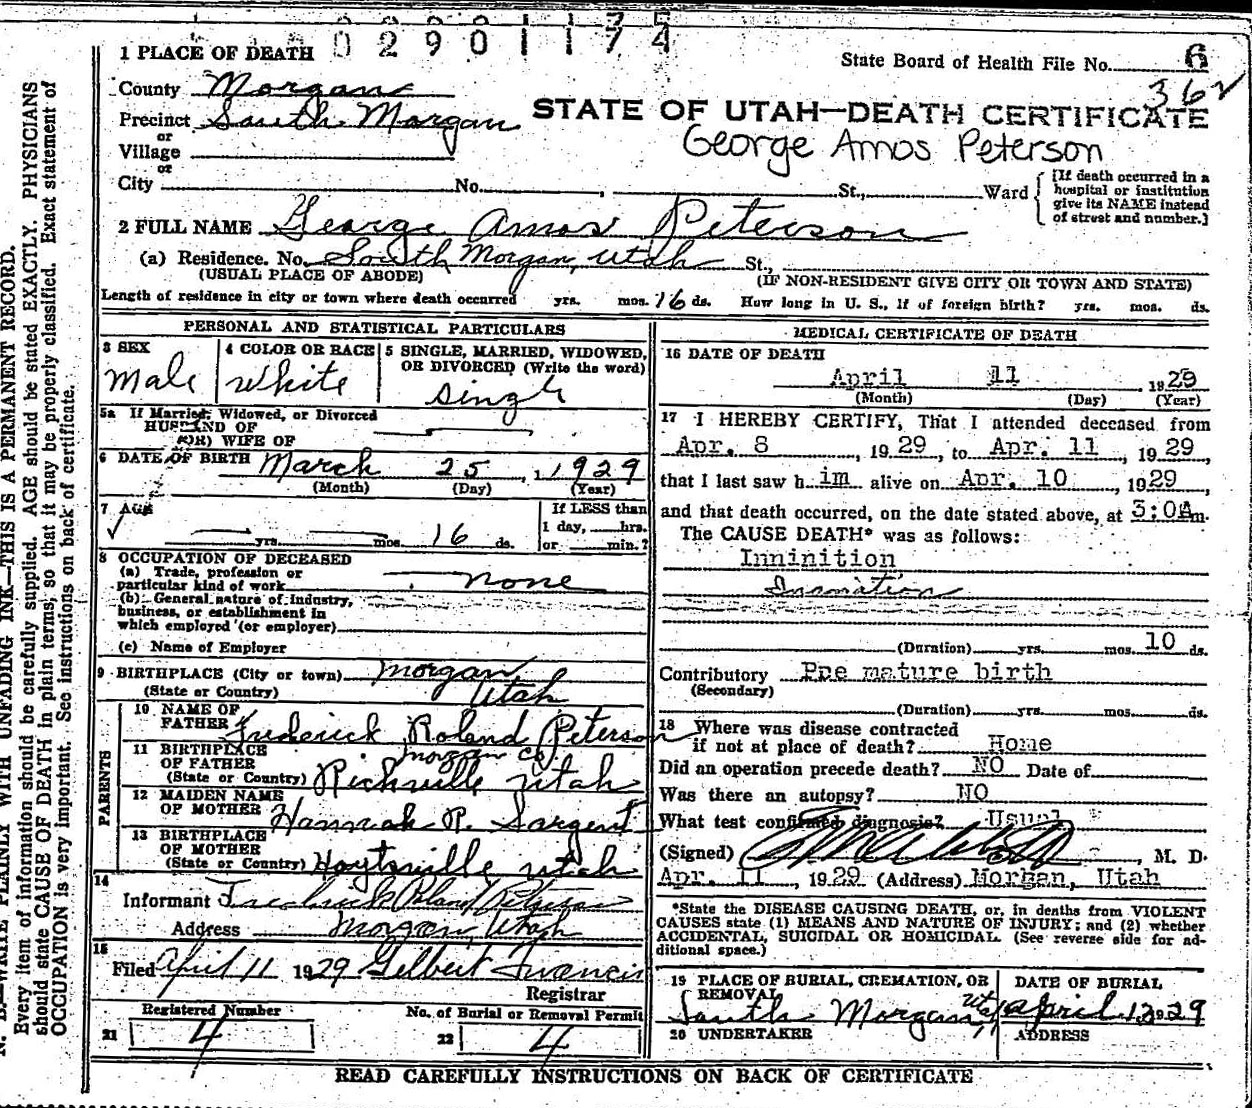 02901174
1 PLACE OF DEATH
State Board of Health File No. 6
362
County Morgan
STATE OF UTAH—DEATH CERTIFICATE
Precinct South Morgan
George Amos Peterson
or
Village
or
City No. St., Ward
[If death occurred in a
hospital or institution
give its NAME instead
of street and number.]
2 FULL NAME George Amos Peterson
(a) Residence. No. South Morgan, Utah St.,
(USUAL PLACE OF ABODE) (IF NON-RESIDENT GIVE CITY OR TOWN AND STATE)
Length of residence in city or town where death occurred yrs. mos. 16 ds. How long in U. S., if of foreign birth? yrs. mos. ds.
PERSONAL AND STATISTICAL PARTICULARS
3 SEX
Male
4 COLOR OR RACE
White
5 SINGLE, MARRIED, WIDOWED,
OR DIVORCED (Write the word)
Single
5a If Married, Widowed, or Divorced
HUSBAND OF
(OR) WIFE OF
6 DATE OF BIRTH March 25, 1929
(Month) (Day) (Year)
7 AGE
yrs. mos. 16 ds.
If LESS than
1 day, hrs.
or min.?
8 OCCUPATION OF DECEASED
(a) Trade, profession or
particular kind of work none
(b) General nature of industry,
business, or establishment in
which employed (or employer)
(c) Name of Employer
9 BIRTHPLACE (City or town) Morgan
(State or Country) Utah
PARENTS
10 NAME OF
FATHER Frederick Roland Peterson
11 BIRTHPLACE
OF FATHER Morgan Co.
(State or Country) Richville Utah
12 MAIDEN NAME
OF MOTHER Hannah R. Sargent
13 BIRTHPLACE
OF MOTHER
(State or Country) Hoytsville Utah
14
Informant Frederick Roland Peterson
Address Morgan, Utah
15
Filed April 11 1929 Gilbert Francis
Registrar
Registered Number
21 4
No. of Burial or Removal Permit
22 4
MEDICAL CERTIFICATE OF DEATH
16 DATE OF DEATH
April 11 1929
(Month) (Day) (Year)
17 I HEREBY CERTIFY, That I attended deceased from
Apr. 8, 1929, to Apr. 11, 1929,
that I last saw him alive on Apr. 10, 1929,
and that death occurred, on the date stated above, at 3:0Am.
The CAUSE DEATH* was as follows:
Inninition
Inanition
(Duration) yrs. mos. 10 ds.
Contributory Pre mature birth
(Secondary)
(Duration) yrs. mos. ds.
18 Where was disease contracted
if not at place of death? Home
Did an operation precede death? NO Date of
Was there an autopsy? NO
What test confirmed diagnosis? Usual
(Signed) , M. D.
Apr. 11, 1929 (Address) Morgan, Utah
*State the DISEASE CAUSING DEATH, or, in deaths from VIOLENT
CAUSES state (1) MEANS AND NATURE OF INJURY; and (2) whether
ACCIDENTAL, SUICIDAL OR HOMICIDAL. (See reverse side for ad-
ditional space.)
19 PLACE OF BURIAL, CREMATION, OR
REMOVAL
South Morgan, Utah
DATE OF BURIAL
April 12 1929
20 UNDERTAKER
ADDRESS
READ CAREFULLY INSTRUCTIONS ON BACK OF CERTIFICATE
N. B.—WRITE PLAINLY WITH UNFADING INK—THIS IS A PERMANENT RECORD.
Every item of information should be carefully supplied. AGE should be stated EXACTLY. PHYSICIANS
should state CAUSE OF DEATH in plain terms, so that it may be properly classified. Exact statement of
OCCUPATION is very important. See instructions on back of certificate.